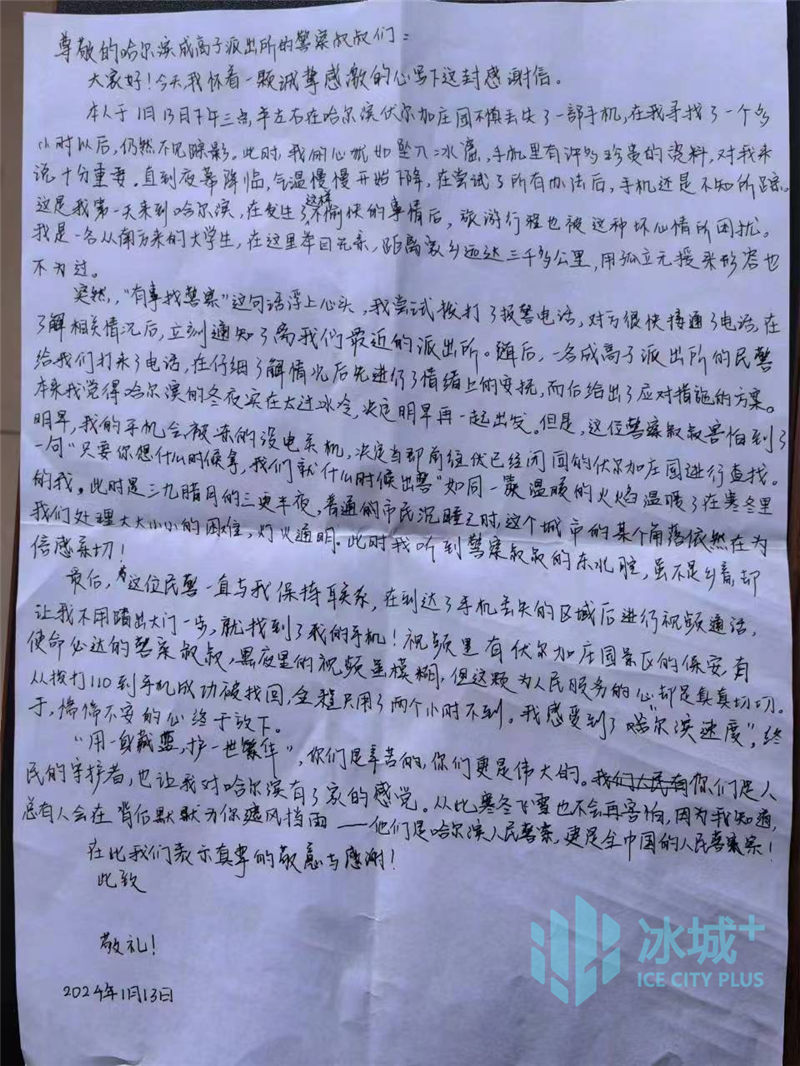 尊敬的哈尔滨成高子派出所的警察叔叔们：
大家好！今天我怀着一颗诚挚感激的心写下这封感谢信。
本人于1月13日下午三点半左右在哈尔滨伏尔加庄园不慎丢失了一部手机，在我寻找了一个多
小时以后，仍然不见踪影。此时，我的心犹如坠入冰窟，手机里有许多珍贵的资料，对我来
说十分重要。直到夜幕降临，气温慢慢开始下降，在尝试了所有办法后，手机还是不知所踪。
这是我第一天来到哈尔滨，在发生了这样不愉快的事情后，旅游行程也被这种坏心情所困扰。
我是一名从南方来的大学生，在这里举目无亲，距离家乡远达三千多公里，用孤立无援来形容也
不为过。
突然，“有事找警察”这句话浮上心头，我尝试拨打了报警电话，对方很快接通了电话，在
了解相关情况后，立刻通知了离我们最近的派出所。随后，一名成高子派出所的民警
给我们打来了电话，在仔细了解情况后先进行了情绪上的安抚，而后给出了应对措施的方案。
本来我觉得哈尔滨的冬夜实在太过冰冷，决定明早再一起出发。但是，这位警察叔叔害怕到了
明早，我的手机会被冻的没电关机，决定当即前往伏已经闭园的伏尔加庄园进行查找。
一句“只要你想什么时候拿，我们就什么时候出警”如同一簇温暖的火焰温暖了在寒冬里
的我。此时是三九腊月的三更半夜，普通的市民沉睡之时，这个城市的某个角落依然在为
我们处理大大小小的困难，灯火通明。此时我听到警察叔叔的东北腔，虽不是乡音，却
倍感亲切！
最后，这位民警一直与我保持联系，在到达了手机丢失的区域后进行视频通话，
让我不用踏出大门一步，就找到了我的手机！视频里有伏尔加庄园景区的保安，有
使命必达的警察叔叔，黑夜里的视频虽模糊，但这颗为人民服务的心却是真真切切。
从拨打110到手机成功被找回，全程只用了两个小时不到。我感受到了“哈尔滨速度”，终
于，惴惴不安的心终于放下。
“用一身藏蓝，护一世繁华”，你们是辛苦的，你们更是伟大的。你们是人
民的守护者，也让我对哈尔滨有了家的感觉。从此寒冬飞雪也不会再害怕，因为我知道，
总有人会在背后默默为你遮风挡雨——他们是哈尔滨人民警察，更是全中国的人民警察！
在此我们表示真挚的敬意与感谢！
此致
敬礼！
2024年1月13日
冰城+
ICE CITY PLUS